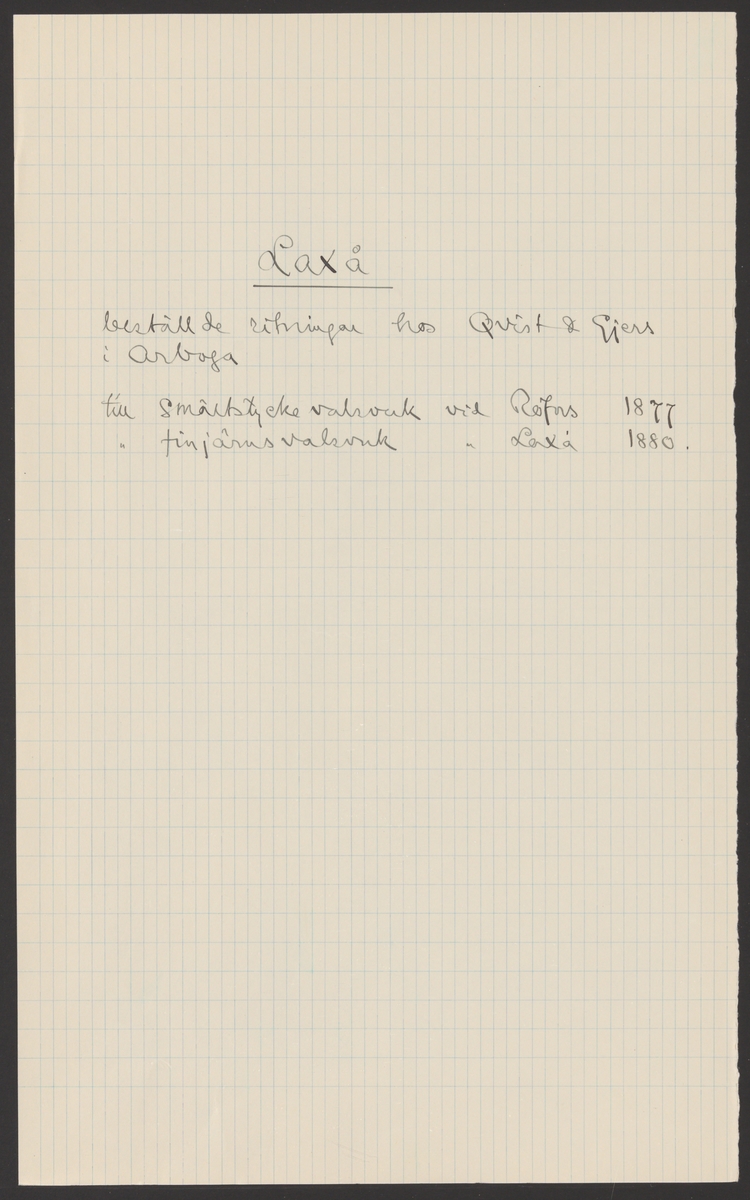 Laxå
beställde ritningar hos Qvist & Gjers
i Arboga
till smältstyckevalsverk vid Röfors 1877
" finjärnsvalsverk " Laxå 1880.